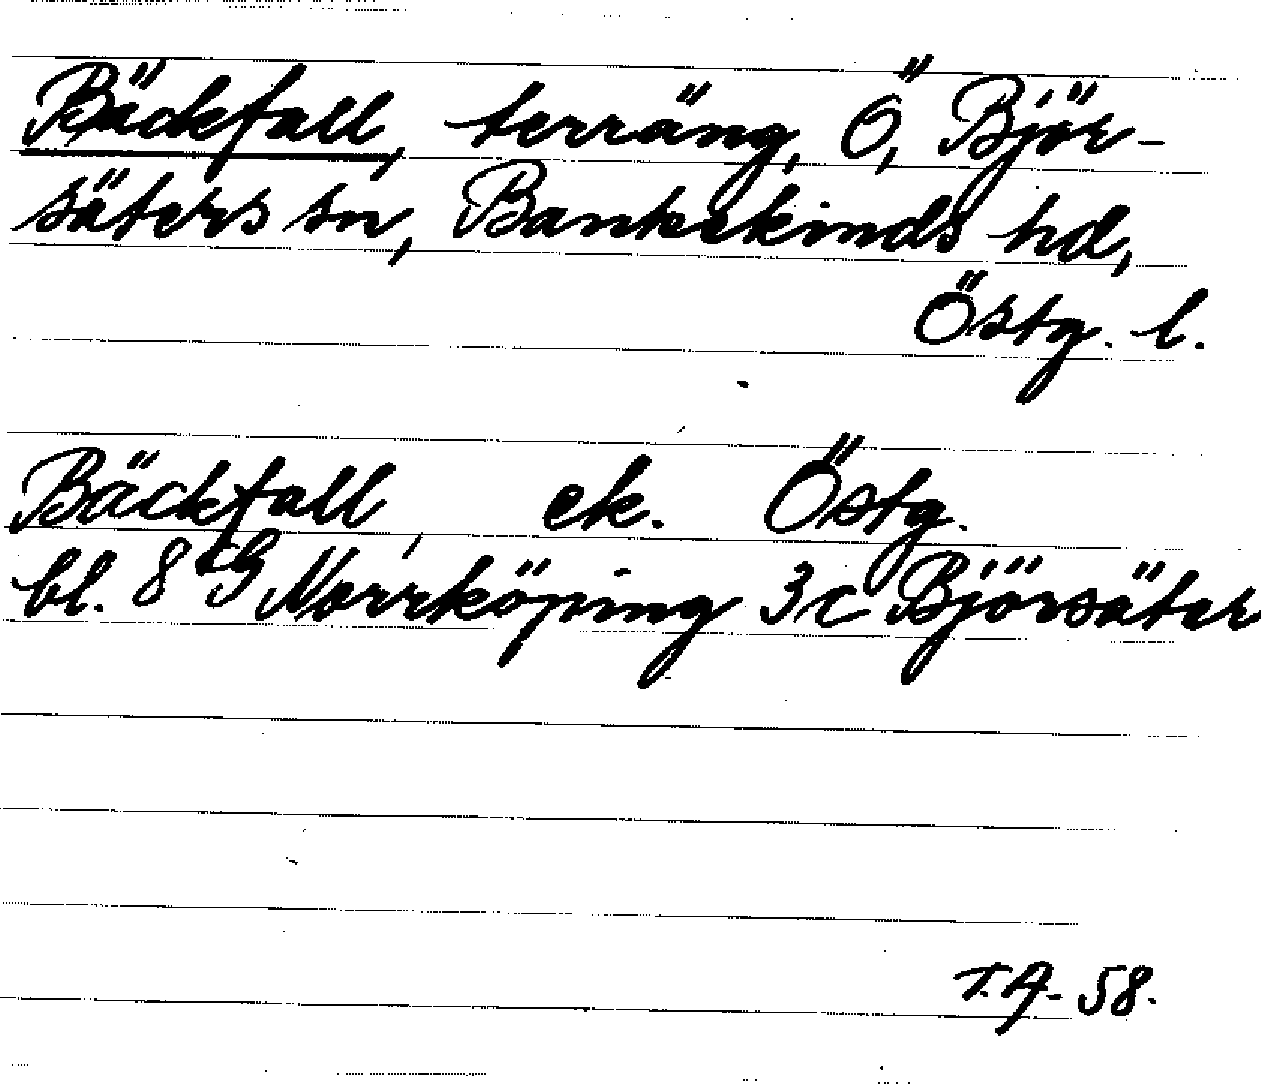 Bäckfall, terräng, Ö, Björ-
säters sn, Bankekinds hd,
Östg. l.
Bäckfall, ek. Östg.
bl. 8 G Norrköping 3c Björsäter
T.A. 58.